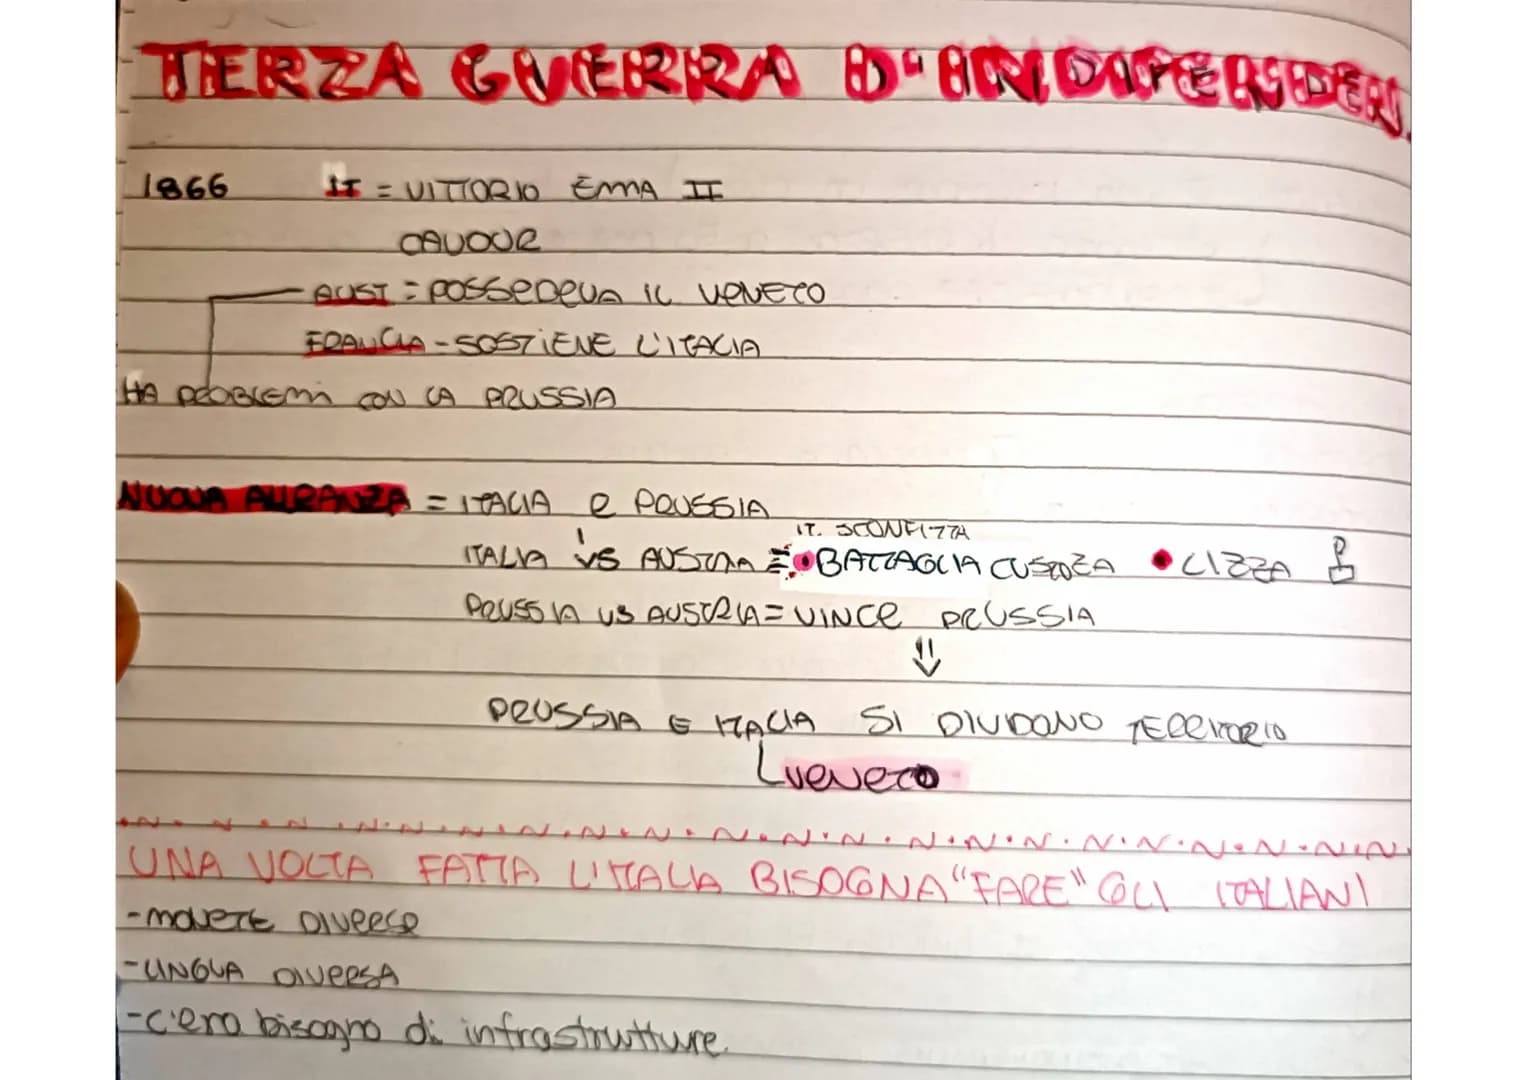 TERZA GUERRA D'INDIPENDEN
1866 IT = VITTORIO EMMA II
CAVOUR
AUST = POSSEDEVA IL VENETO
FRANCIA - SOSTIENE L'ITALIA
HA PROBLEMI CON LA PRUSSIA
NUOVA ALLEANZA = ITALIA e PRUSSIA
IT. SCONFITTA
ITALIA VS AUSTRIA = • BATTAGLIA CUSTOZA • LIZZA
PRUSSIA VS AUSTRIA = VINCE PRUSSIA
PRUSSIA E ITALIA SI DIVIDONO TERRITORIO
VENETO
UNA VOLTA FATTA L'ITALIA BISOGNA "FARE" GLI ITALIANI
- MONETE DIVERSE
- LINGUA DIVERSA
- c'era bisogno di infrastrutture.